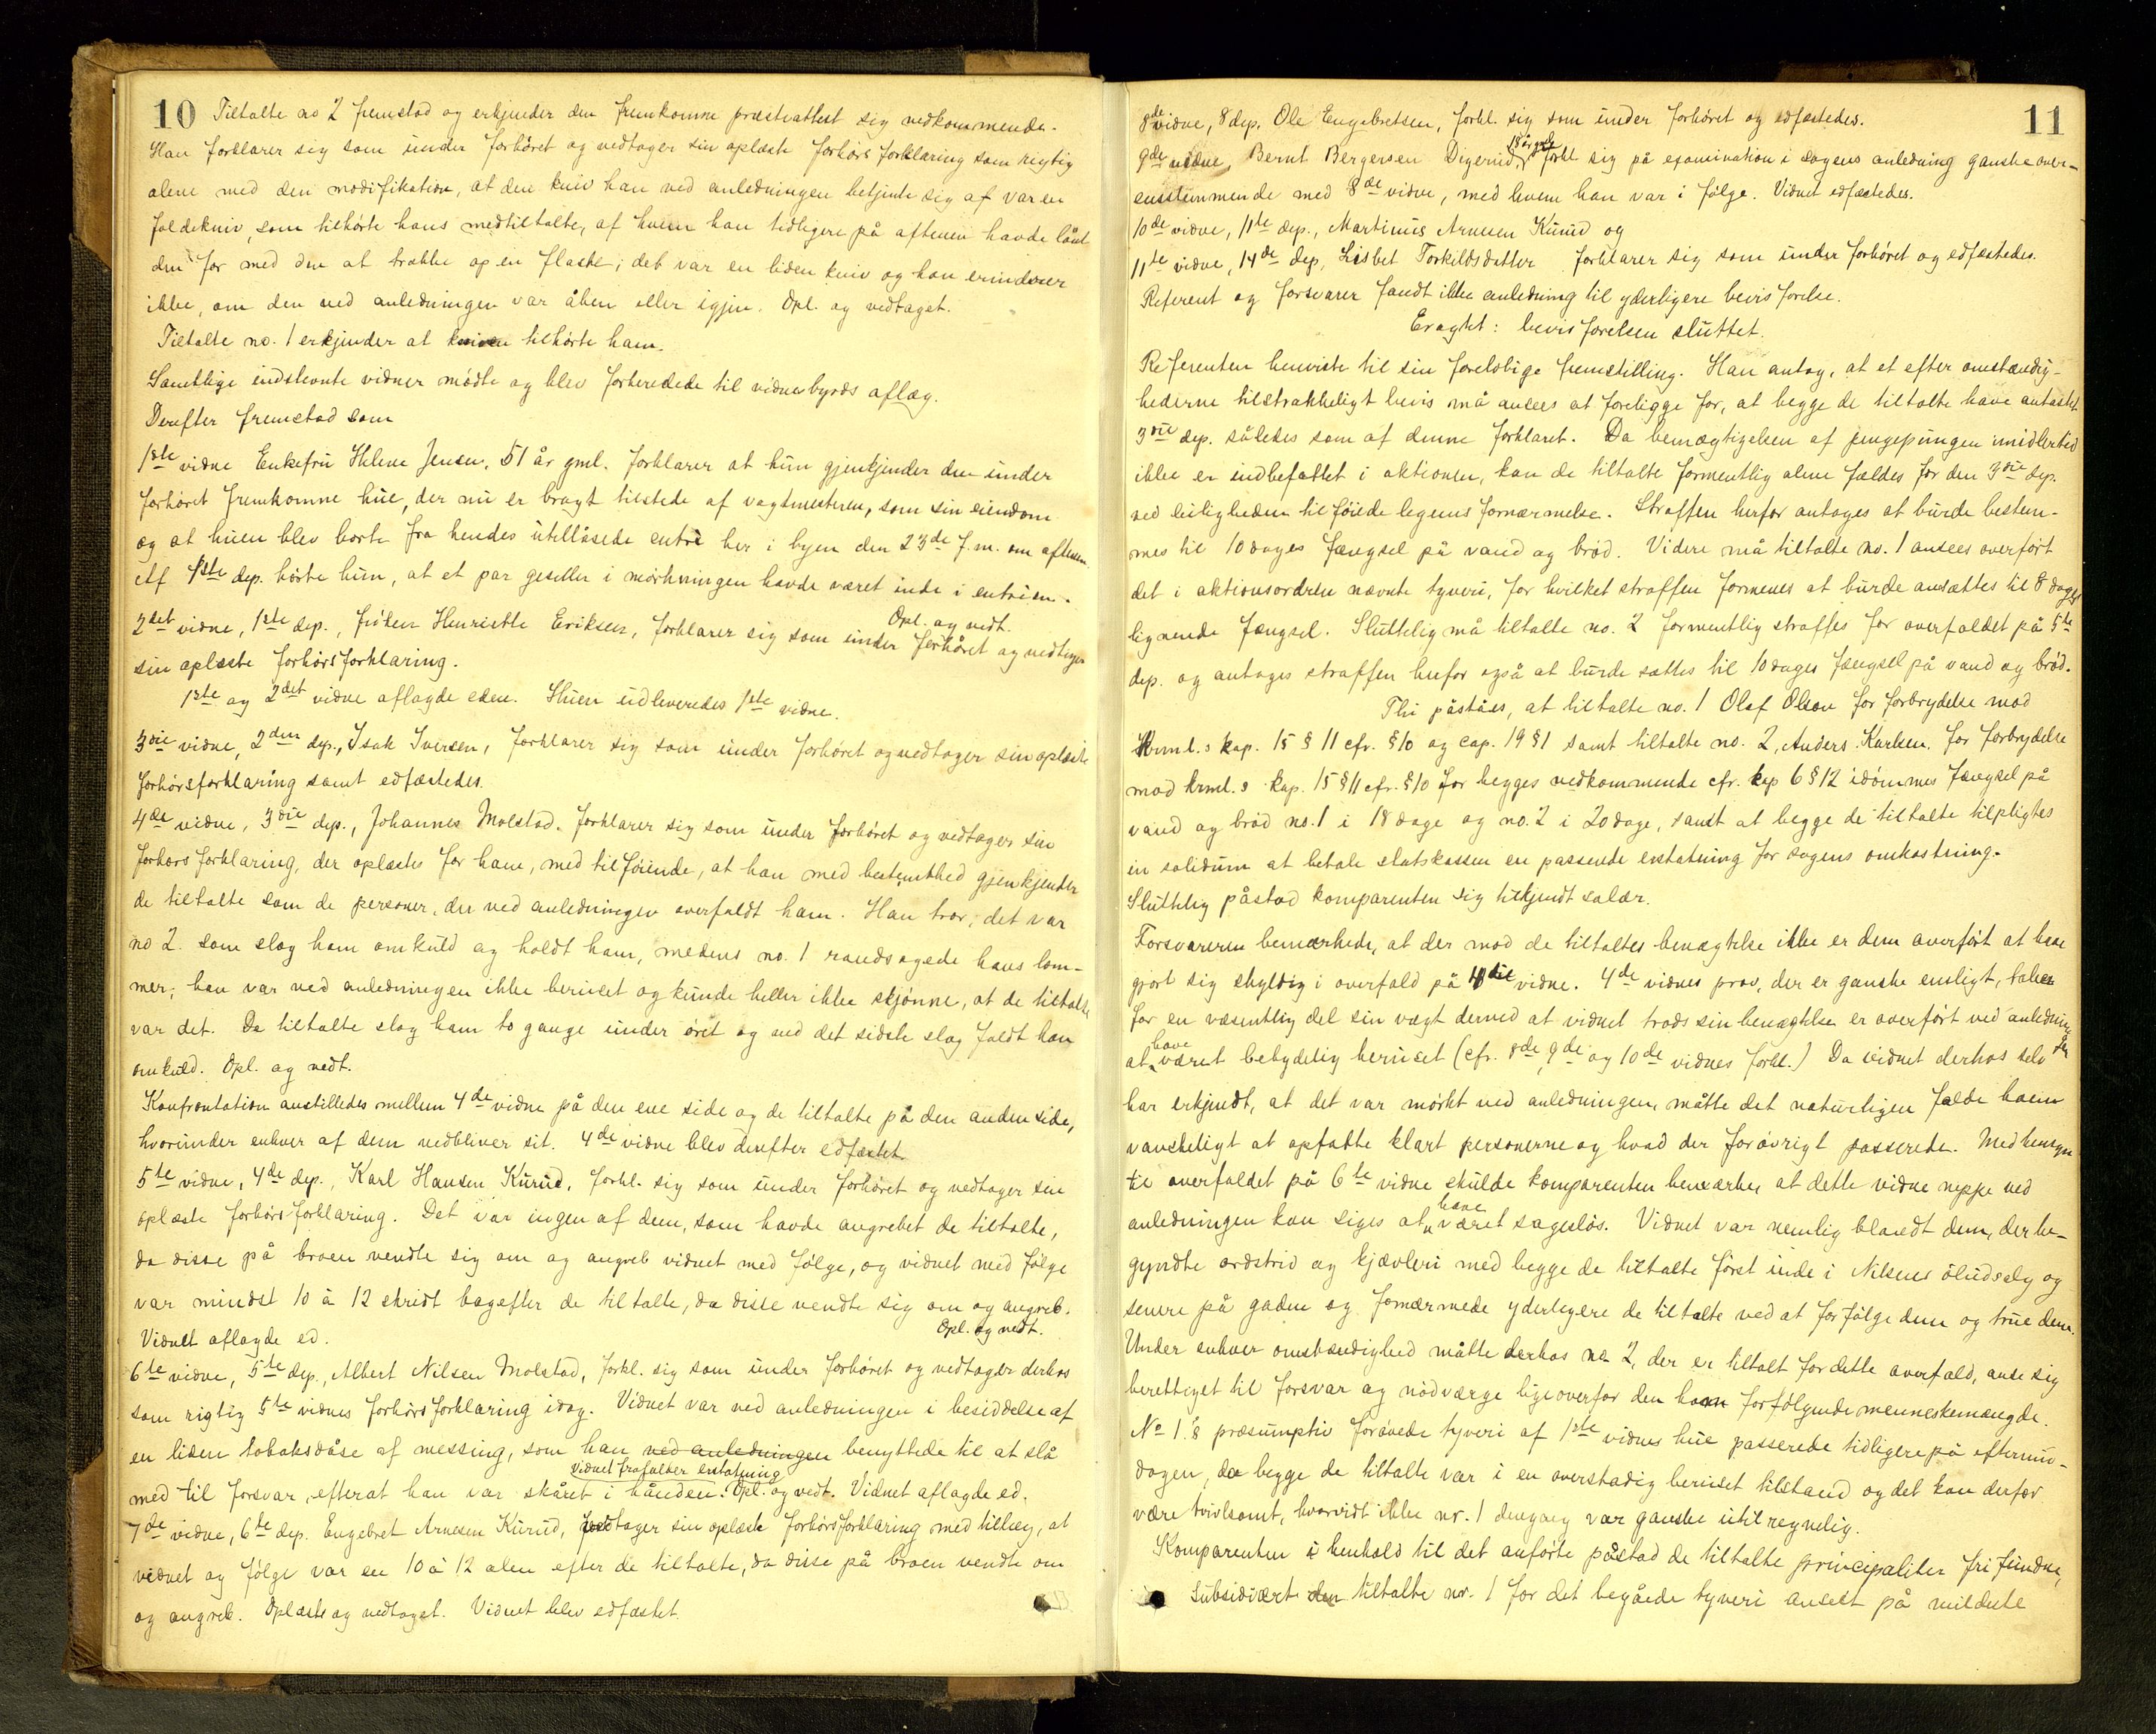 10
Tiltalte no 2 fremstod og erkjender den fremkomne præsteattest sig vedkommende.
Han forklarer sig som under forhøret og vedtager sin oplæste forhørsforklaring som rigtig
alene med den modifikation, at den kniv han ved anledningen betjente sig af var en
foldekniv, som tilhørte hans medtiltalte, af hvem han tidligere på aftenen havde lånt
den for med den at trække op en flaske; det var en liden kniv og han erindrer
ikke, om den ved anledningen var åben eller igjen. Opl. og vedtaget.
Tiltalte no. 1 erkjender at kniven tilhørte ham.
Samtlige indstevnte vidner mødte og blev forberedede til vidnesbyrds aflæg.
Derefter fremstod som
1ste vidne Enkefru Helene Jensen, 51 år gml. forklarer at hun gjenkjender den under
forhøret fremkomne hue, der nu er bragt tilstede af vagtmesteren, som sin eiendom
og at huen blev borte fra hendes utillåsede entré her i byen den 23de f.m. om aftenen.
Af 1ste dep. hørte hun, at et par geseller i mørkningen havde været inde i entréen.
Opl. og vedt.
2det vidne, 1ste dep., frøken Henriette Eriksen, forklarer sig som under forhøret og vedtager
sin oplæste forhørsforklaring.
1ste og 2det vidne aflagde eden. Huen udleveredes 1ste vidne.
3die vidne, 2den dep., Isak Iversen, forklarer sig som under forhøret og vedtager sin oplæste
forhørsforklaring samt edfæstedes.
4de vidne, 3die dep., Johannes Molstad. forklarer sig som under forhøret og vedtager sin
forhørsforklaring, der oplæstes for ham, med tilføiende, at han med bestemthed gjenkjender
de tiltalte som de personer, der ved anledningen overfaldt ham. Han tror, det var
no 2. som slog ham omkuld og holdt ham, medens no. 1 randsagede hans lom-
mer; han var ved anledningen ikke beruset og kunde heller ikke skjønne, at de tiltalte
var det. De tiltalte slog ham to gange under øret og ved det sidste slag faldt han
omkuld. Opl. og vedt.
Konfrontation anstilledes mellem 4de vidne på den ene side og de tiltalte på den anden side,
hvorunder enhver af dem vedbliver sit. 4de vidne blev derefter edfæstet.
5te vidne, 4de dep., Karl Hansen Kurud, forkl. sig som under forhøret og vedtager sin
oplæste forhørsforklaring. Det var ingen af dem, som havde angrebet de tiltalte,
da disse på broen vendte sig om og angreb vidnet med følge, og vidnet med følge
var mindst 10 à 12 skridt bagefter de tiltalte, da disse vendte sig om og angreb.
Opl. og vedt.
Vidnet aflagde ed.
6te vidne, 5te dep., Albert Nilsen Molstad, forkl. sig som under forhøret og vedtager derhos
som rigtig 5te vidnes forhørsforklaring idag. Vidnet var ved anledningen i besiddelse af
en liden tobaksdåse af messing, som han ved anledningen benyttede til at slå
vidnet frafalder erstatning
med til forsvar, efterat han var skåret i hånden. Opl. og vedt. Vidnet aflagde ed.
7de vidne, 6te dep. Engebret Arnesen Kurud, vedtager sin oplæste forhørsforklaring med tillæg, at
vidnet og følge var en 10 à 12 alen efter de tiltalte, da disse på broen vendte om
og angreb. Oplæst og vedtaget. Vidnet blev edfæstet.
11
8de vidne, 8 dep. Ole Engebretsen, forkl. sig som under forhøret og edfæstedes.
18 år gml.
9de vidne, Bernt Bergersen Digerud, forkl sig på examination i sagens anledning ganske over-
ensstemmende med 8de vidne, med hvem han var i følge. Vidnet edfæstedes.
10de vidne, 11te dep., Martinus Arnesen Kurud og
11te vidne, 14de dep, Lisbet Torkildsdatter forklarer sig som under forhøret og edfæstedes.
Referent og forsvarer fandt ikke anledning til yderligere bevisførelse.
Eragtet: bevisførelsen sluttet.
Referenten henviste til sin foreløbige fremstilling. Han antog, at et efter omstændig-
hederne tilstrækkeligt bevis må ansees at foreligge for, at begge de tiltalte have antastet
3die dep. således som af denne forklaret. Da bemægtigelsen af pengepungen imidlertid
ikke er indbefattet i aktionen, kan de tiltalte formentlig alene fældes for den 3die dep.
ved leiligheden tilføiede legemsfornærmelse. Straffen herfor antages at burde bestem-
mes til 10 dages fængsel på vand og brød. Videre må tiltalte no. 1 ansees overført
det i aktionsordren nævnte tyveri, for hvilket straffen formenes at burde ansættes til 8 dages
lignende fængsel. Sluttelig må tiltalte no. 2 formentlig straffes for overfaldet på 5te
dep. og antages straffen herfor også at burde sættes til 10 dages fængsel på vand og brød.
Thi påståes, at tiltalte no. 1 Olaf Olsen for forbrydelse mod
Krml.s kap. 15 § 11 cfr. § 10 og cap. 19 § 1 samt tiltalte no. 2, Anders Karlsen. for forbrydelse
mod krml.s kap. 15 § 11 cfr. § 10 for begges vedkommende cfr. kap 6 § 12 idømmes fængsel på
vand og brød no. 1 i 18 dage og no. 2 i 20 dage, samt at begge de tiltalte tilpligtes
in solidum at betale statskassen en passende erstatning for sagens omkostning.
Sluttelig påstod komparenten sig tilkjendt salær.
Forsvareren bemærkede, at der mod de tiltaltes benægtelse ikke er dem overført at have
gjort sig skyldig i overfald på 4de vidne. 4de vidnes prov, der er ganske ensligt, taber
for en væsentlig del sin vægt derved at vidnet trods sin benægtelse er overført ved anledningen
have
at været betydelig beruset (cfr. 8de, 9de og 10de vidnes forkl.) Da vidnet derhos selv
har erkjendt, at det var mørkt ved anledningen, måtte det naturligen falde ham
vanskeligt at opfatte klart personerne og hvad der forøvrigt passerede. Med hensyn
til overfaldet på 6te vidne skulde komparenten bemærke, at dette vidne neppe ved
have
anledningen kan siges at været sagesløs. Vidnet var nemlig blandt dem, der be-
gyndte ordstrid og kjævleri med begge de tiltalte først inde i Nilsens øludsalg og
senere på gaden og fornærmede yderligere de tiltalte ved at forfølge dem og true dem.
Under enhver omstændighed måtte derhos no 2, der er tiltalt for dette overfald, anse sig
berettiget til forsvar og nødværge ligeoverfor den ham forfølgende menneskemængde.
No 1.'s præsumptiv forøvede tyveri af 1ste vidnes hue passerede tidligere på eftermid-
dagen, da begge de tiltalte var i en overstadig beruset tilstand og det kan derfor
være tvivlsomt, hvorvidt ikke nr. 1 dengang var ganske utilregnelig.
Komparenten i henhold til det anførte påstod de tiltalte principaliter frifundne,
subsidiært den tiltalte nr. 1 for det begåede tyveri anseet på mildeste